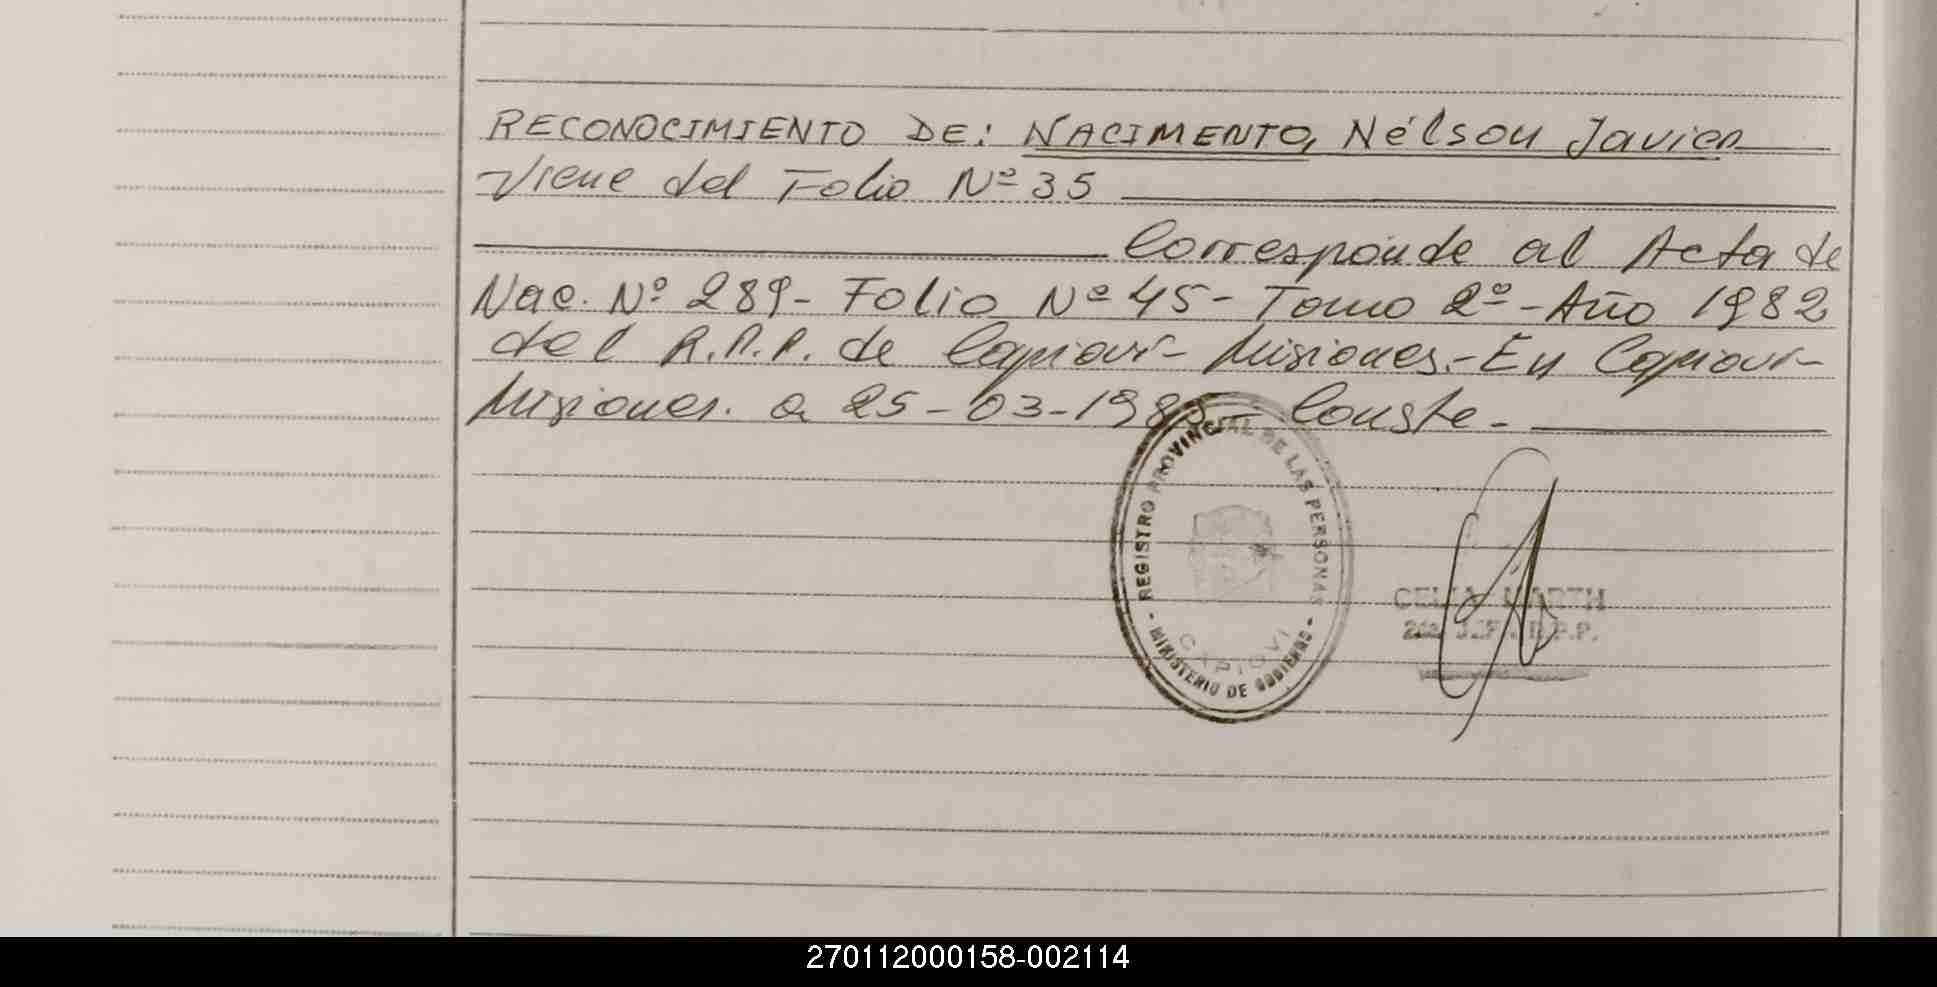 RECONOCIMIENTO DE: NACIMENTO, Nélson Javier
Viene del Folio Nº 35
Corresponde al Acta de
Nac. Nº 289 - Folio Nº 45 - Tomo 2º - Año 1982
del R.P.P. de Capioví - Misiones. - En Capioví -
Misiones. a 25 - 03 - 1988 - Conste. -
- REGISTRO PROVINCIAL DE LAS PERSONAS -
CAPIOVI
MINISTERIO DE GOBIERNO
CELIA
R.P.P.
270112000158-002114